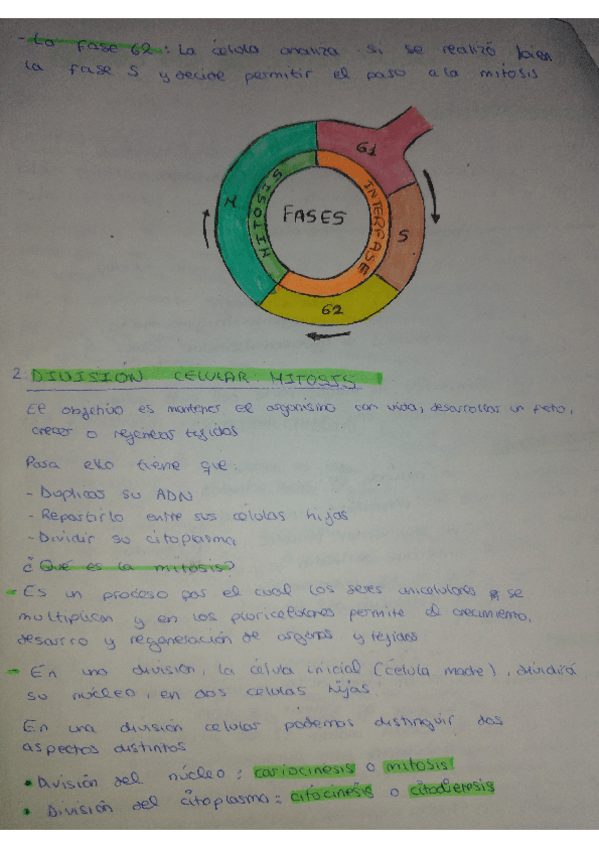 - La fase G2: La célula analiza si se realizó bien
la fase S y decide permitir el paso a la mitosis
G1
M
MITOSIS
INTERFASE
FASES
S
G2
2. DIVISIÓN CELULAR: MITOSIS
El objetivo es mantener el organismo con vida, desarrollar un feto,
crecer o regenerar tejidos
Para ello tiene que:
- Duplicar su ADN
- Repartirlo entre sus células hijas
- Dividir su citoplasma
¿Qué es la mitosis?
- Es un proceso por el cual los seres unicelulares se
multiplican y en los pluricelulares permite el crecimiento,
desarro y regeneración de organos y tejidos
- En una división, la célula inicial (célula madre), dividirá
su núcleo, en dos celulas hijas
En una división celular podemos distinguir dos
aspectos distintos
• División del núcleo: cariocinesis o mitosis
• División del citoplasma: citocinesis o citodieresis